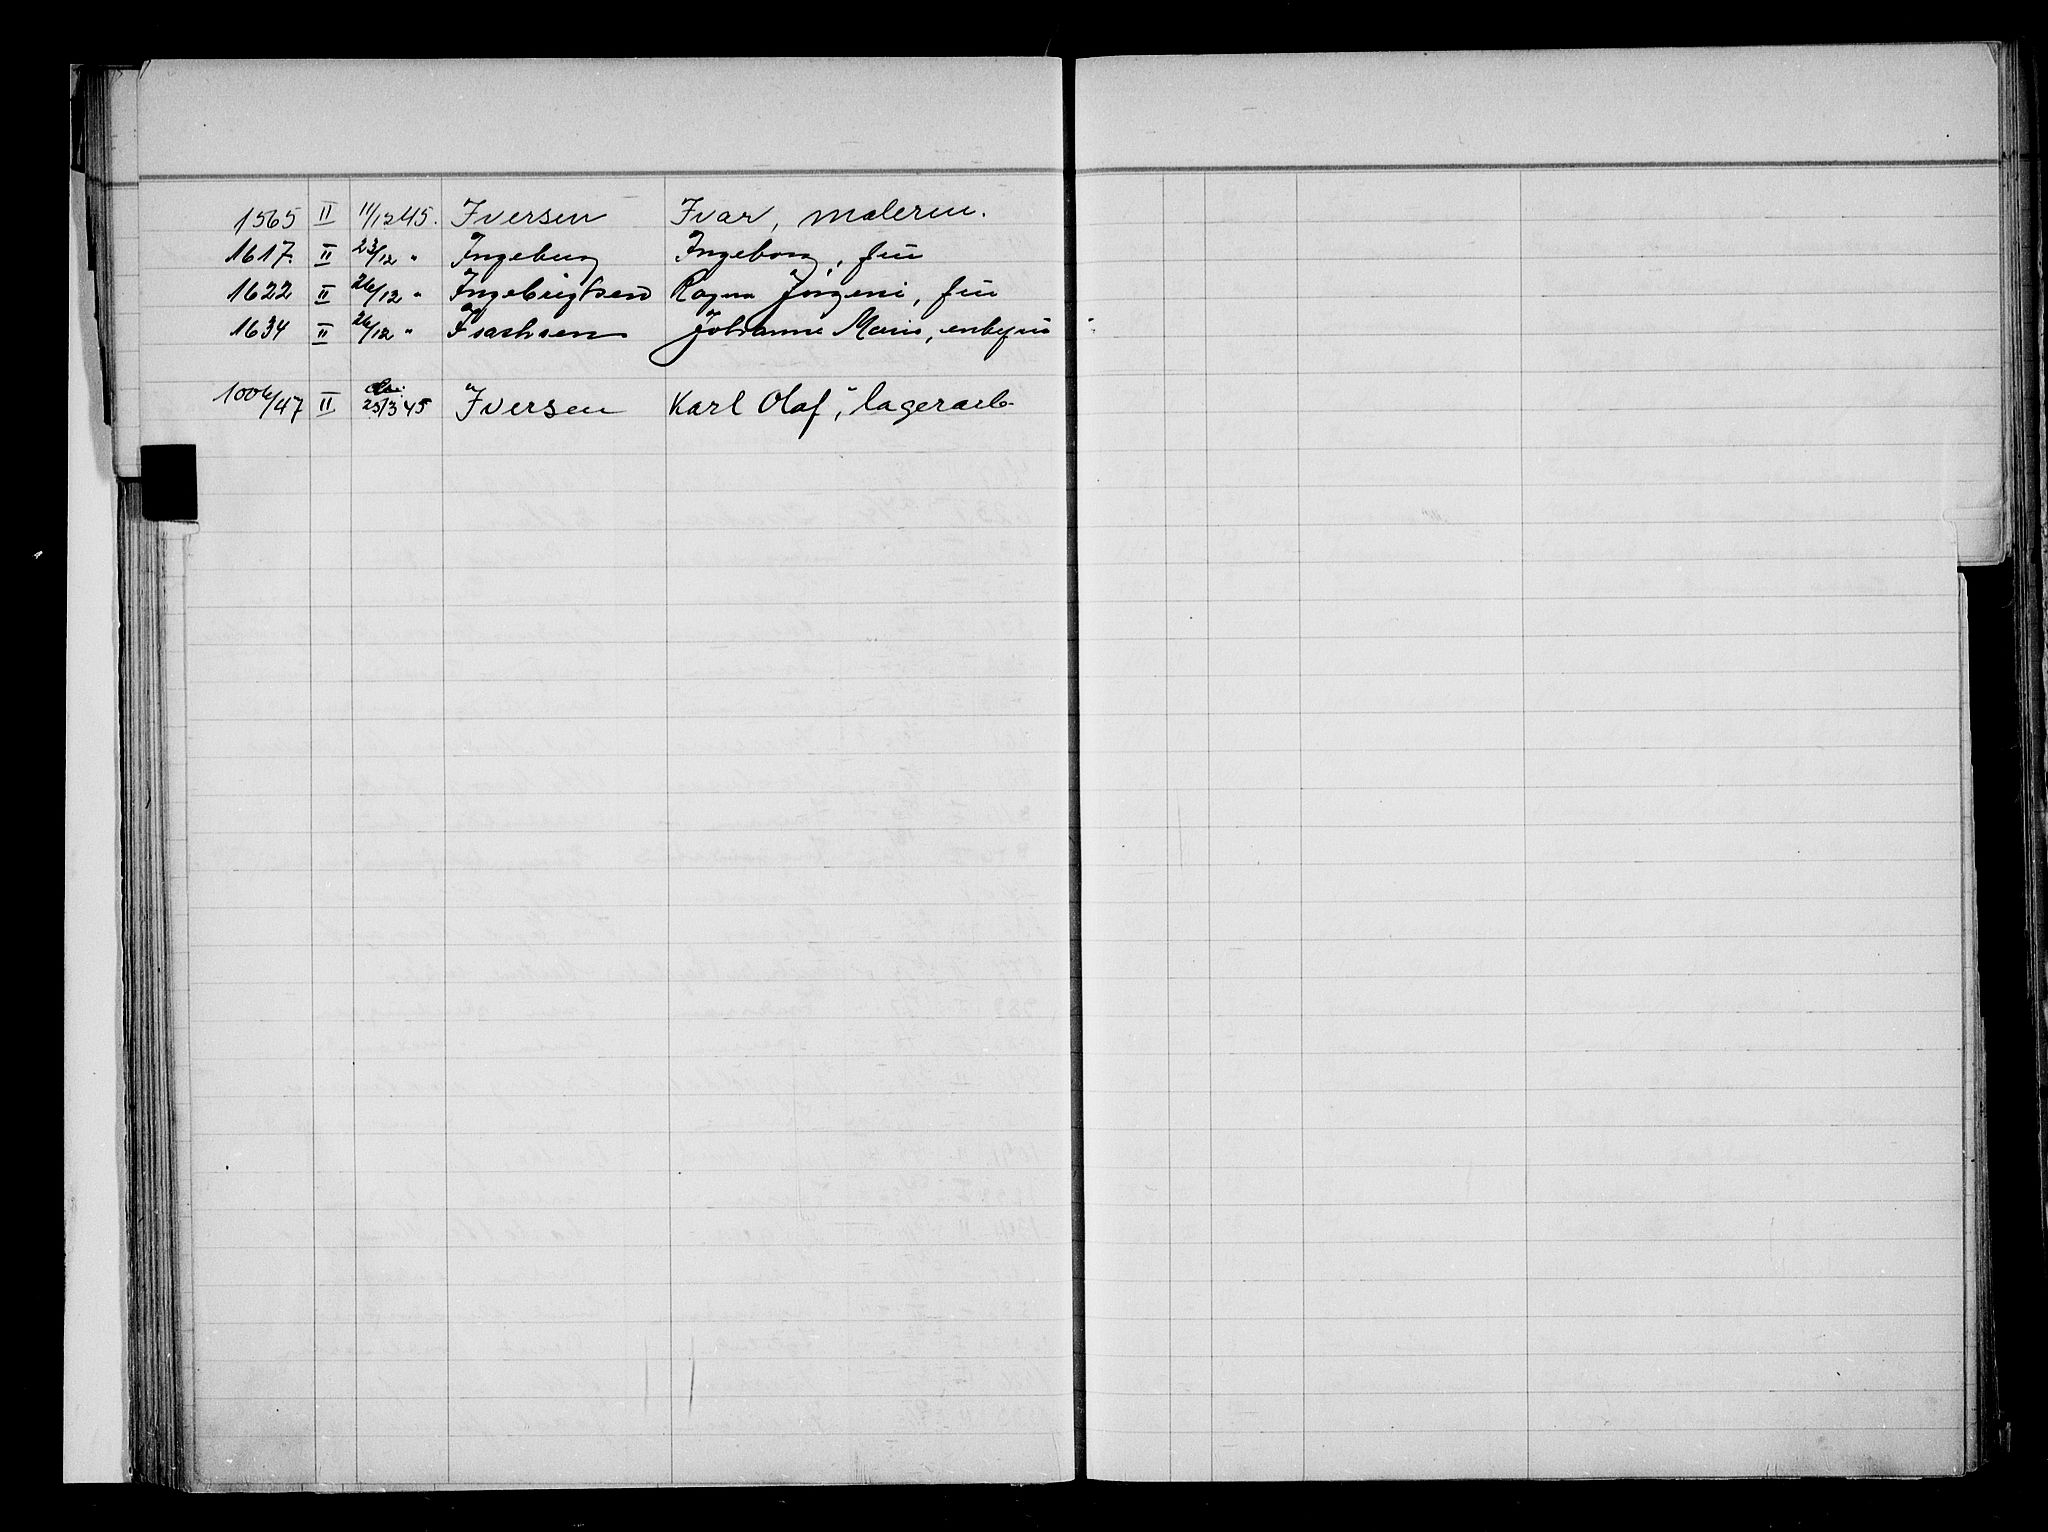 1565 II 11/12 45. Iversen Ivar, malerm.
1617. II 23/12 " Ingeberg Ingeborg, fru
1622 II 26/12 " Ingebrigtsen Ragna Jørgine, fru
1634 II 26/12 " Isachsen Johanne Marie, enkefru
1006/47 II 25/3 45 Iversen Karl Olaf, lagerarb.